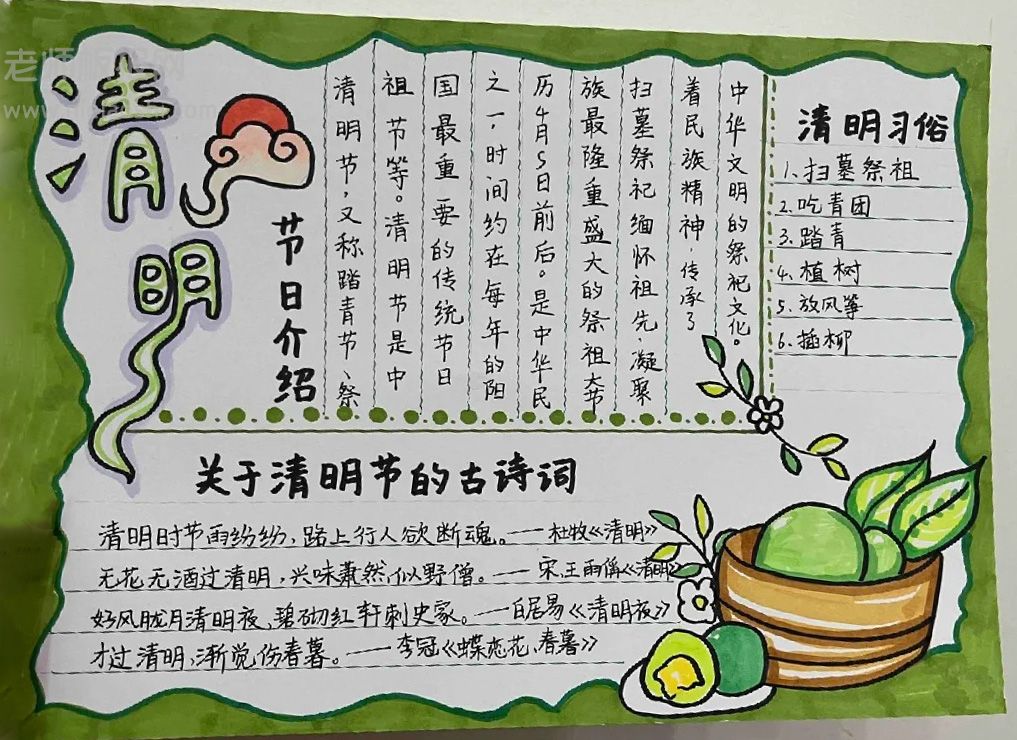 清明
节日介绍
清明节,又称踏青节、祭
祖节等。清明节是中
国最重要的传统节日
之一,时间约在每年的阳
历4月5日前后。是中华民
族最隆重盛大的祭祖大节
扫墓祭祀缅怀祖先,凝聚
着民族精神 传承了
中华文明的祭祀文化。
清明习俗
1、扫墓祭祖
2.吃青团
3.踏青
4.植树
5.放风筝
6.插柳
关于清明节的古诗词
清明时节雨纷纷,路上行人欲断魂。——杜牧《清明》
无花无酒过清明,兴味萧然似野僧。——宋,王雨偁《清明》
好风胧月清明夜,碧砌红轩刺史家。——白居易《清明夜》
才过清明,渐觉伤春暮。——李冠《蝶恋花、春暮》
老师
www.